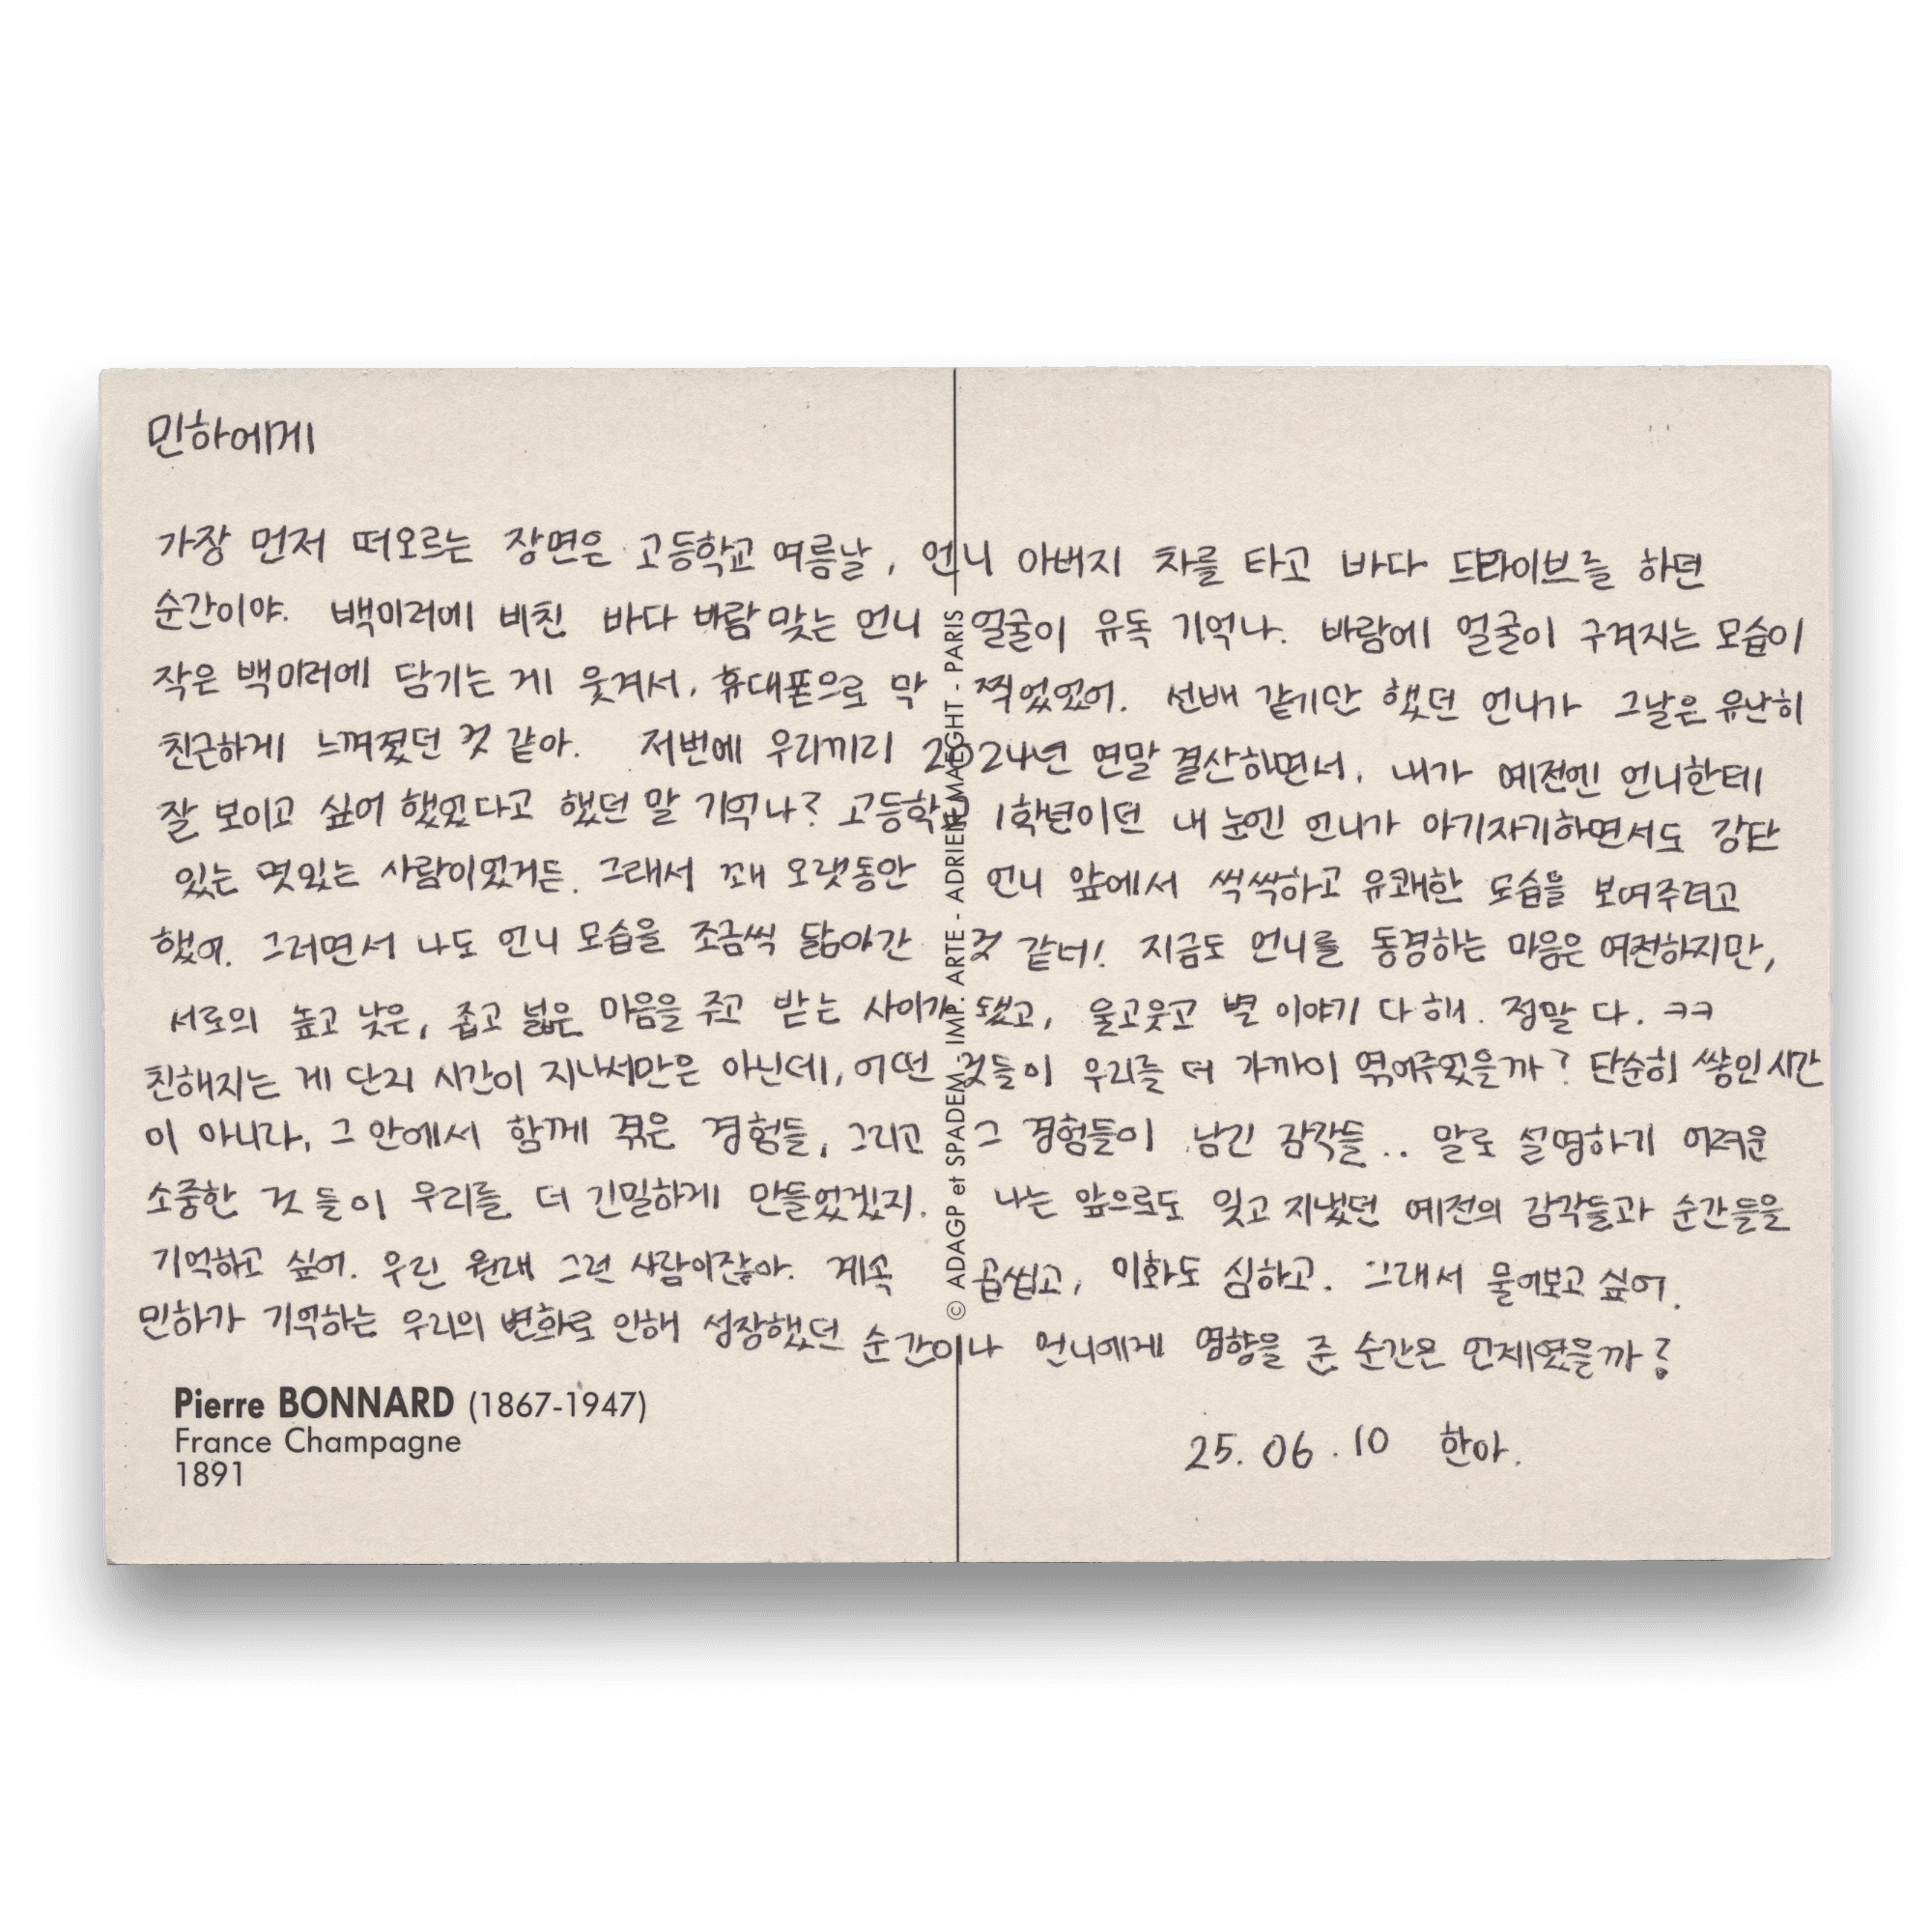 민하에게
가장 먼저 떠오르는 장면은 고등학교 여름날, 언니 아버지 차를 타고 바다 드라이브를 하던
순간이야. 백미러에 비친 바다 바람 맞는 언니 얼굴이 유독 기억나. 바람에 얼굴이 구겨지는 모습이
작은 백미러에 담기는 게 웃겨서, 휴대폰으로 막 찍었었어. 선배 같기만 했던 언니가 그날은 유난히
친근하게 느껴졌던 것 같아. 저번에 우리끼리 2024년 연말 결산하면서, 내가 예전엔 언니한테
잘 보이고 싶어 했었다고 했던 말 기억나? 고등학교 1학년이던 내 눈엔 언니가 아기자기하면서도 강단
있는 멋있는 사람이었거든. 그래서 꽤 오랫동안 언니 앞에서 씩씩하고 유쾌한 모습을 보여주려고
했어. 그러면서 나도 언니 모습을 조금씩 닮아간 것 같네! 지금도 언니를 동경하는 마음은 여전하지만,
서로의 높고 낮은, 좁고 넓은 마음을 주고 받는 사이가 됐고, 울고웃고 별 이야기 다 해. 정말 다. ㅋㅋ
친해지는 게 단지 시간이 지나서만은 아닌데, 어떤 것들이 우리를 더 가까이 엮어주었을까? 단순히 쌓인 시간
이 아니라, 그 안에서 함께 겪은 경험들, 그리고 그 경험들이 남긴 감각들.. 말로 설명하기 어려운
소중한 것 들이 우리를 더 긴밀하게 만들었겠지. 나는 앞으로도 잊고 지냈던 예전의 감각들과 순간들을
기억하고 싶어. 우린 원래 그런 사람이잖아. 계속 곱씹고, 미화도 심하고. 그래서 물어보고 싶어.
민하가 기억하는 우리의 변화로 인해 성장했던 순간이나 언니에게 영향을 준 순간은 언제였을까?
25. 06. 10 한아.
Pierre BONNARD (1867-1947)
France Champagne
1891
© ADAGP et SPADEM - IMP. ARTE - ADRIEN MAEGHT - PARIS